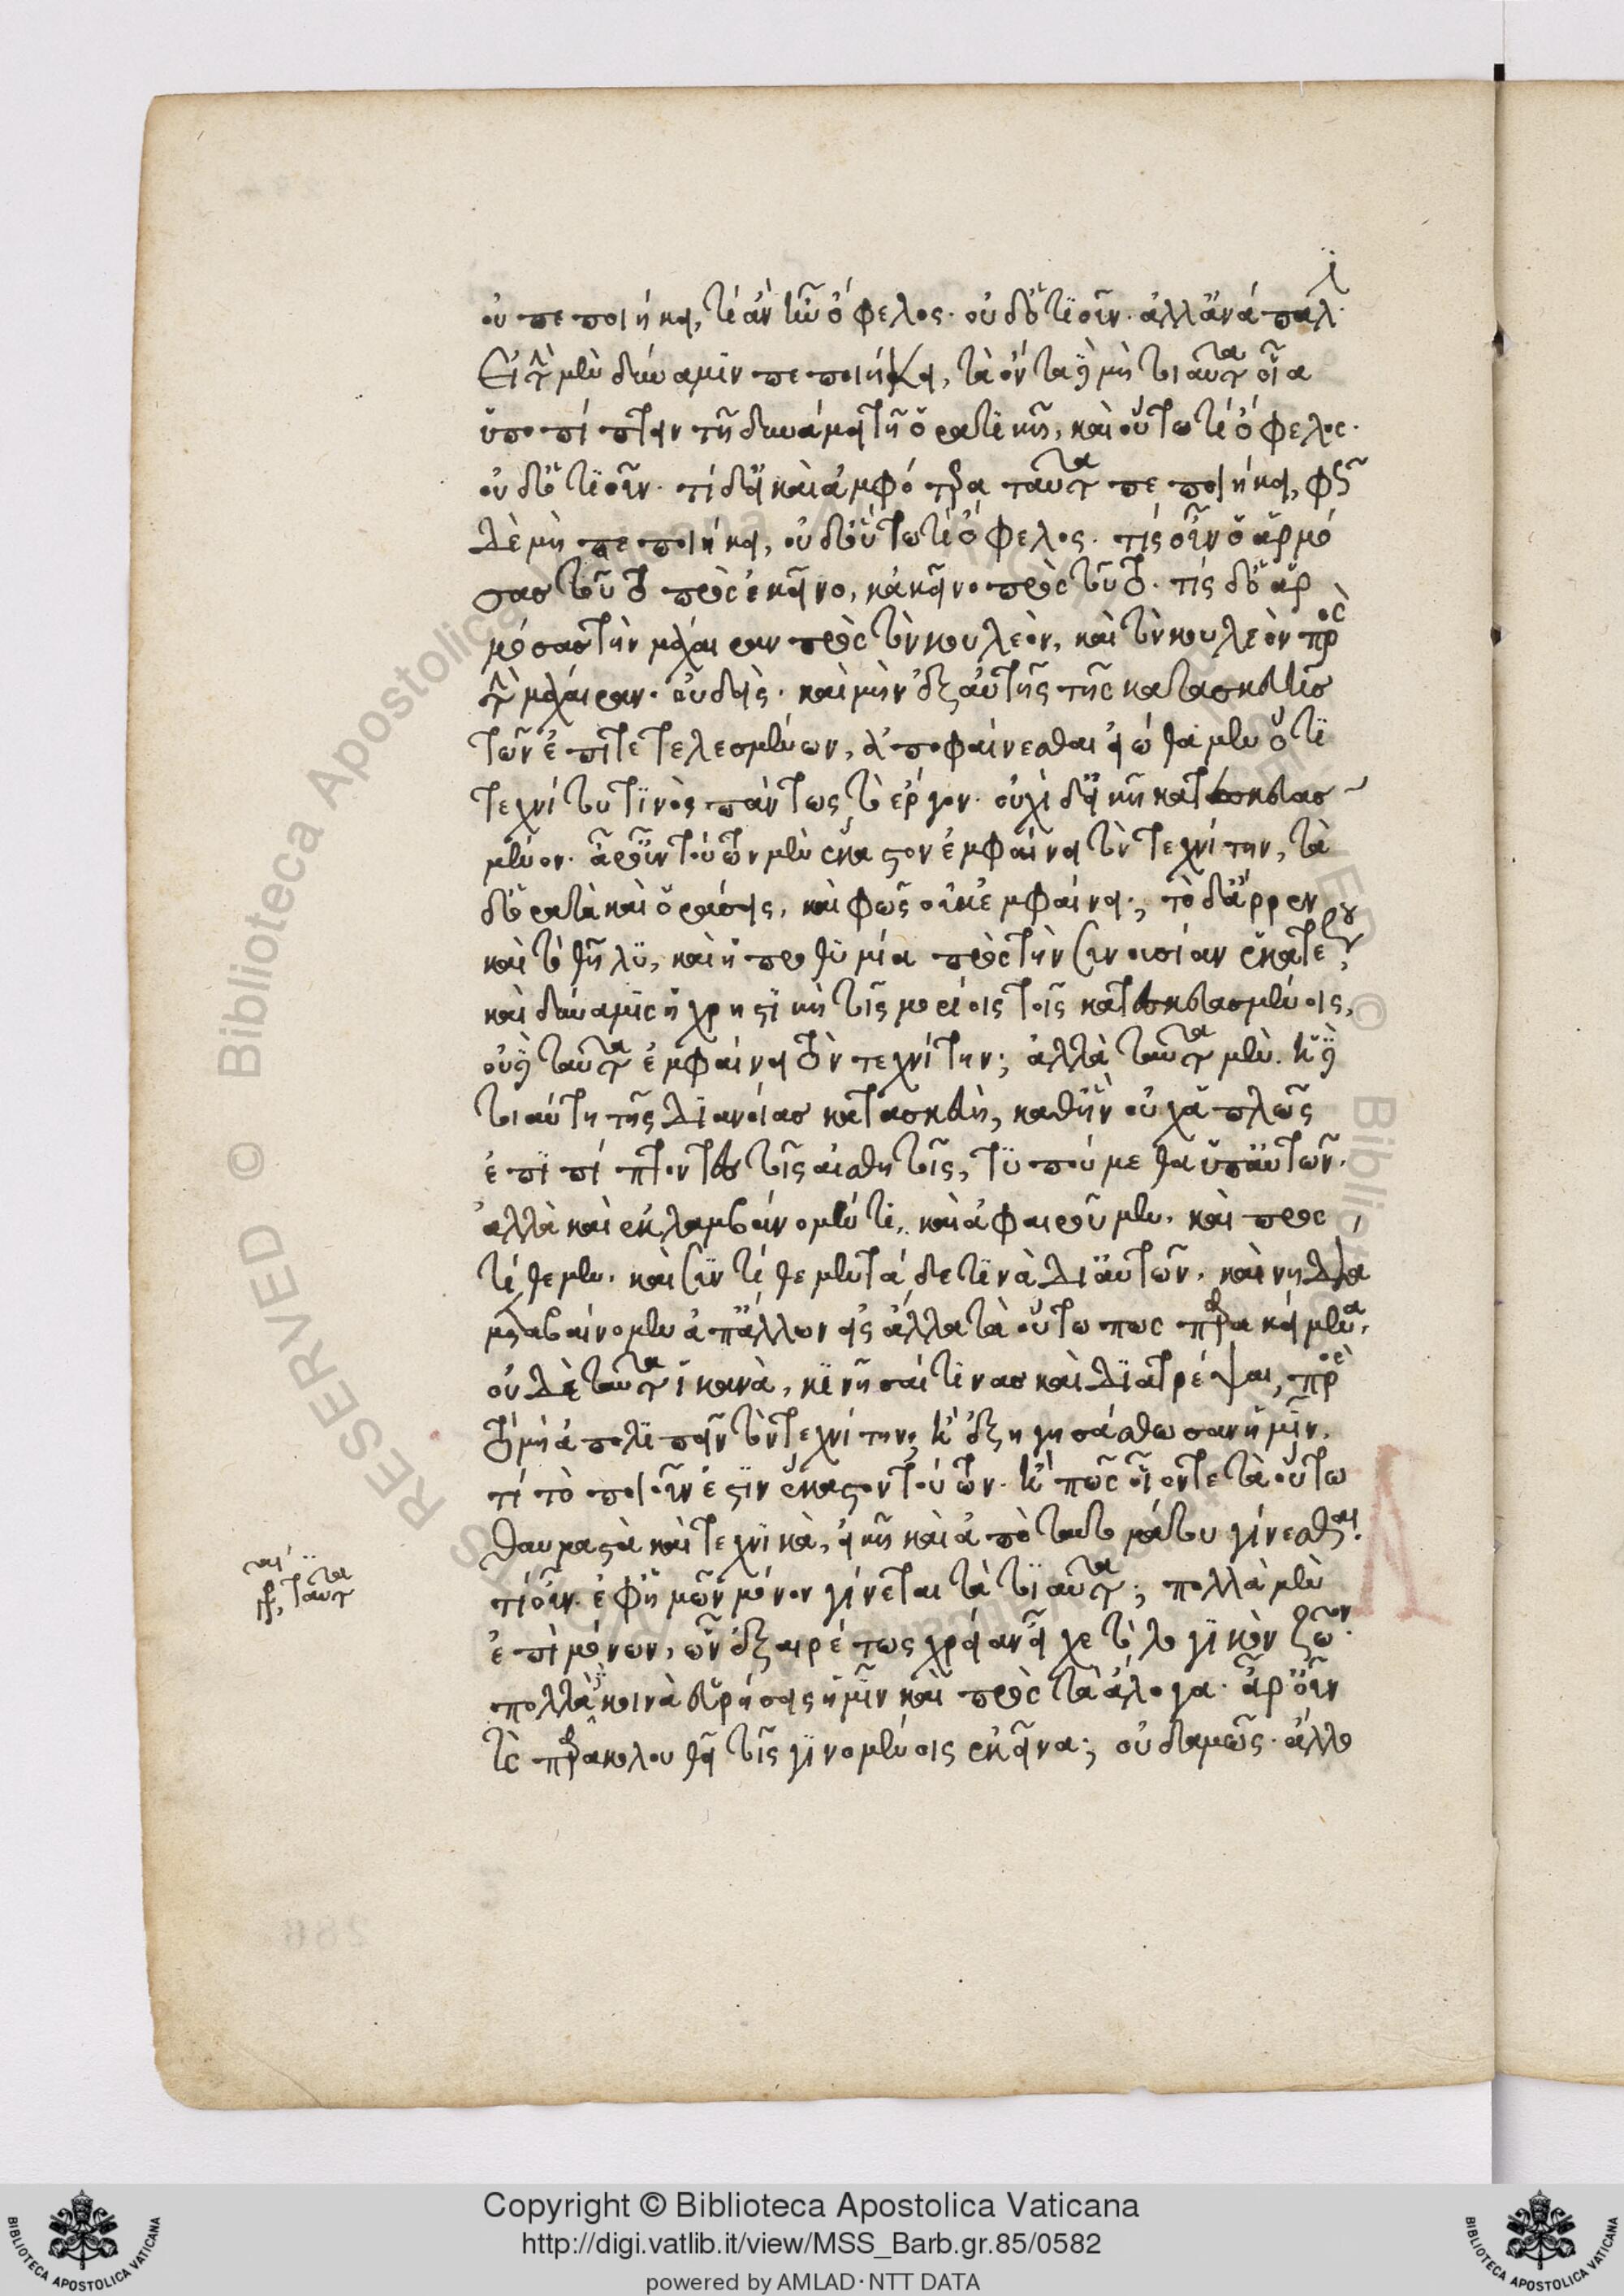 οὐ πεποιήκει, τί ἂν ἦν ὄφελος. οὐδ' ὁτιοῦν. ἀλλ' ἀνάπαλι
Εἰ τὴν μὲν δύναμιν πεποιήκει, τὰ ὄντα δὲ μὴ τοιαῦτα οἷα
ὑποπίπτειν τῇ δυνάμει τῇ ὁρατικῇ, καὶ οὕτω τί ὄφελος.
οὐδ' ὁτιοῦν. τί δ' εἰ καὶ ἀμφότερα ταῦτα πεποιήκει, φῶς
δὲ μὴ πεποιήκει, οὐδ' οὕτω τί ὄφελος. τίς οὖν ὁ ἁρμό
σας τοῦτο πρὸς ἐκεῖνο, κἀκεῖνο πρὸς τοῦτο. τίς δ' ὁ ἁρ
μόσας τὴν μάχαιραν πρὸς τὸν κουλεὸν, καὶ τὸν κουλεὸν πρὸς
τὴν μάχαιραν. οὐδείς. καὶ μὴν ἐξ αὐτῆς τῆς κατασκευῆς
τῶν ἐπιτετελεσμένων, ἀποφαίνεσθαι εἰώθαμεν ὅτι
τεχνίτου τινὸς πάντως τὸ ἔργον. οὐχὶ δ' εἰκῇ κατεσκευασ
μένον. ἆρ' οὖν τούτων μὲν ἕκαστον ἐμφαίνει τὸν τεχνίτην, τὰ
δ' ὁρατὰ καὶ ὅρασις, καὶ φῶς οὐκ ἐμφαίνει; τὸ δ' ἄρρεν
καὶ τὸ θῆλυ, καὶ ἡ προθυμία πρὸς τὴν συνουσίαν ἑκατέρου,
καὶ δύναμις ἡ χρηστικὴ τοῖς μορίοις τοῖς κατεσκευασμένοις,
οὐδὲ ταῦτα ἐμφαίνει τὸν τεχνίτην; ἀλλὰ ταῦτα μὲν. ἡ δὲ
τοιαύτη τῆς διανοίας κατασκευὴ, καθ' ἣν οὐχ ἁπλῶς
ἐπιπίπτοντες τοῖς αἰσθητοῖς, τυπούμεθα ὑπ' αὐτῶν.
ἀλλὰ καὶ ἐκλαμβάνομέν τι. καὶ ἀφαιροῦμεν. καὶ προσ
τίθεμεν. καὶ συντίθεμεν τάδε τινὰ δι' αὐτῶν. καὶ νὴ Δία
μεταβαίνομεν ἀπ' ἄλλων εἰς ἄλλα τὰ οὕτω πως παρακείμενα,
οὐδὲ ταῦτα ἱκανὰ, κινῆσαί τινας καὶ διατρέψαι, πρὸς
τὸ μὴ ἀπολιπεῖν τὸν τεχνίτην; ἢ ἐξηγησάσθωσαν ἡμῖν.
τί τὸ ποιοῦν ἐστὶν ἕκαστον τούτων. ἢ πῶς οἷόν τε τὰ οὕτω
θαυμαστὰ καὶ τεχνικὰ, εἰκῇ καὶ ἀπὸ ταὐτομάτου γίνεσθαι.
τί οὖν. ἐφ' ἡμῶν μόνον γίνεται τὰ τοιαῦτα; πολλὰ μὲν
ἐπὶ μόνων, ὧν ἐξαιρέτως χρείαν εἶχε τὸ λογικὸν ζῶον.
πολλὰ δὲ κοινὰ εὑρήσεις ἡμῖν καὶ πρὸς τὰ ἄλογα. ἆρ' οὖν
τε παρακολουθεῖ τοῖς γινομένοις ἐκεῖνα; οὐδαμῶς. ἄλλο
Copyright © Biblioteca Apostolica Vaticana
http://digi.vatlib.it/view/MSS_Barb.gr.85/0582
powered by AMLAD · NTT DATA